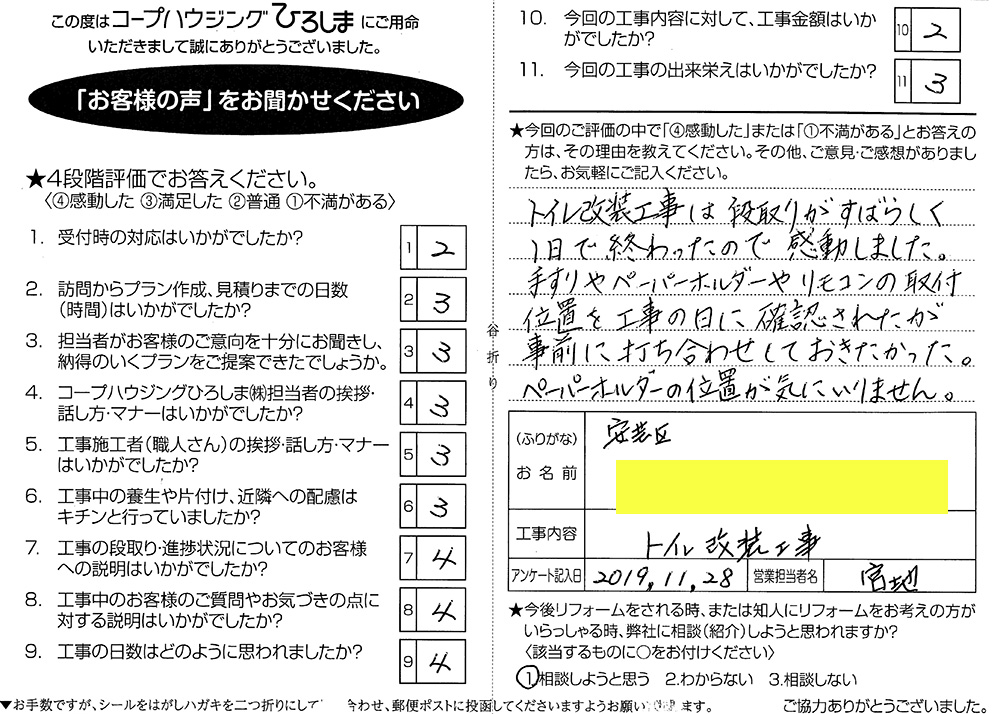 この度はコープハウジングひろしまにご用命
いただきまして誠にありがとうございました。
「お客様の声」をお聞かせください
★4段階評価でお答えください。
〈④感動した ③満足した ②普通 ①不満がある〉
1. 受付時の対応はいかがでしたか?
1 2
2. 訪問からプラン作成、見積りまでの日数
(時間)はいかがでしたか?
2 3
3. 担当者がお客様のご意向を十分にお聞きし、
納得のいくプランをご提案できたでしょうか。
3 3
4. コープハウジングひろしま㈱担当者の挨拶・
話し方・マナーはいかがでしたか?
4 3
5. 工事施工者(職人さん)の挨拶・話し方・マナー
はいかがでしたか?
5 3
6. 工事中の養生や片付け、近隣への配慮は
キチンと行っていましたか?
6 3
7. 工事の段取り・進捗状況についてのお客様
への説明はいかがでしたか?
7 4
8. 工事中のお客様のご質問やお気づきの点に
対する説明はいかがでしたか?
8 4
9. 工事の日数はどのように思われましたか?
9 4
▼お手数ですが、シールをはがしハガキを二つ折りにして
合わせ、郵便ポストに投函してくださいますようお願い
ます。
谷折り
10. 今回の工事内容に対して、工事金額はいか
がでしたか?
10 2
11. 今回の工事の出来栄えはいかがでしたか?
11 3
★今回のご評価の中で「④感動した」または「①不満がある」とお答えの
方は、その理由を教えてください。その他、ご意見・ご感想がありまし
たら、お気軽にご記入ください。
トイレ改装工事は段取りがすばらしく
1日で終わったので感動しました。
手すりやペーパーホルダーやリモコンの取付
位置を工事の日に確認されたが
事前に打ち合わせしておきたかった。
ペーパーホルダーの位置が気にいりません。
(ふりがな)
お名前
安芸区
工事内容
トイレ改装工事
アンケート記入日 2019,11,28 営業担当者名 宮地
★今後リフォームをされる時、または知人にリフォームをお考えの方が
いらっしゃる時、弊社に相談(紹介)しようと思われますか?
〈該当するものに○をお付けください〉
1.相談しようと思う 2.わからない 3.相談しない
ご協力ありがとうございました。